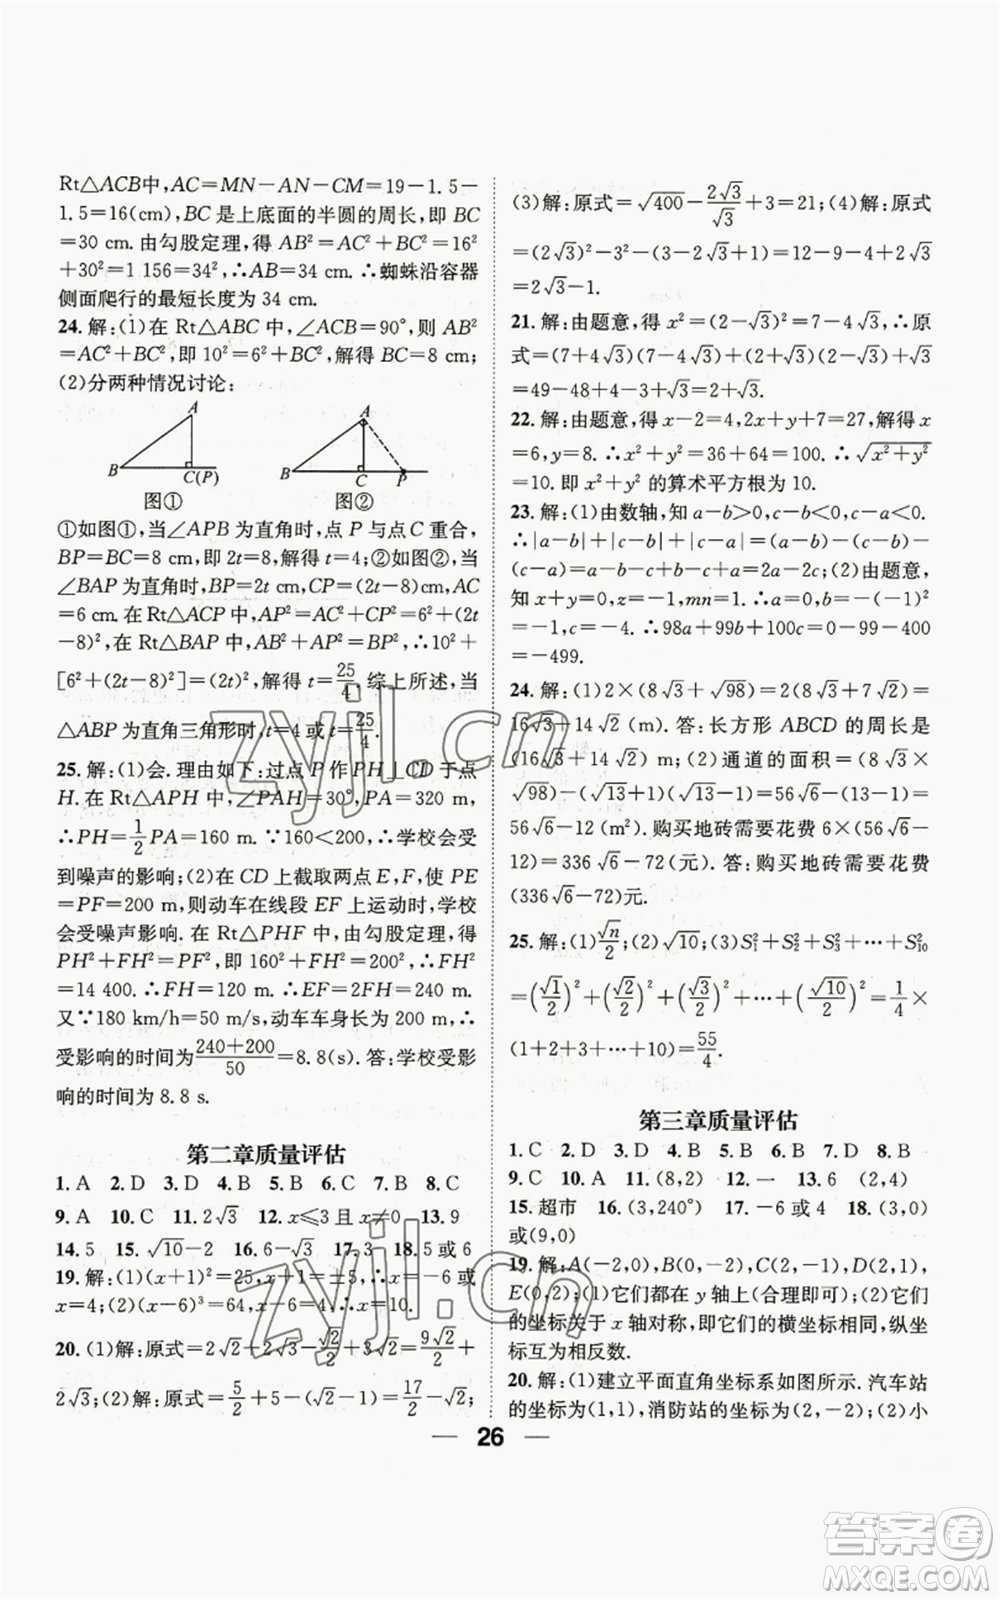 Rt△ACB中,AC=MN-AN-CM=19-1.5-
1.5=16(cm),BC是上底面的半圆的周长,即BC
=30 cm.由勾股定理,得AB²=AC²+BC²=16²
+30²=1 156=34²,∴AB=34 cm.∴蜘蛛沿容器
侧面爬行的最短长度为34 cm.
24.解:(1)在Rt△ABC中,∠ACB=90°,则AB²
=AC²+BC²,即10²=6²+BC².解得BC=8 cm;
(2)分两种情况讨论:
A
B
C(P)
图①
A
B
C
P
图②
①如图①,当∠APB为直角时,点P与点C重合,
BP=BC=8 cm,即2t=8,解得t=4;②如图②,当
∠BAP为直角时,BP=2t cm,CP=(2t-8)cm,AC
=6 cm.在Rt△ACP中,AP²=AC²+CP²=6²+(2t
-8)²,在Rt△BAP中,AB²+AP²=BP²,∴10²+
[6²+(2t-8)²]=(2t)²,解得t=25/4.综上所述,当
△ABP为直角三角形时,t=4或t=25/4.
25.解:(1)会.理由如下:过点P作PH⊥CD于点
H.在Rt△APH中,∠PAH=30°,PA=320 m,
∴PH=1/2PA=160 m.∵160<200,∴学校会受
到噪声的影响;(2)在CD上截取两点E,F,使PE
=PF=200 m,则动车在线段EF上运动时,学校
会受噪声影响.在Rt△PHF中,由勾股定理,得
PH²+FH²=PF²,即160²+FH²=200²,∴FH²=
14 400.∴FH=120 m.∴EF=2FH=240 m.
又∵180 km/h=50 m/s,动车车身长为200 m,∴
受影响的时间为(240+200)/50=8.8(s).答:学校受影
响的时间为8.8 s.
第二章质量评估
1.A 2.D 3.D 4.B 5.B 6.D 7.B 8.C
9.A 10.C 11.2√3 12.x≤3且x≠0 13.9
14.5 15.√10-2 16.6-√3 17.3 18.5或6
19.解:(1)(x+1)²=25,x+1=±5,∴x=-6或
x=4;(2)(x-6)³=64,x-6=4,∴x=10.
20.(1)解:原式=2√2+2√3-√2/2+3√2=9√2/2+
2√3;(2)解:原式=5/2+5-(√2-1)=17/2-√2;
(3)解:原式=√400-2√3/√3+3=21;(4)解:原式
=(2√3)²-3²-(3-2√3+1)=12-9-4+2√3
=2√3-1.
21.解:由题意,得x²=(2-√3)²=7-4√3,∴原
式=(7+4√3)(7-4√3)+(2+√3)(2-√3)+√3
=49-48+4-3+√3=2+√3.
22.解:由题意,得x-2=4,2x+y+7=27,解得x
=6,y=8.∴x²+y²=36+64=100.∴√(x²+y²)
=10.即x²+y²的算术平方根为10.
23.解:(1)由数轴,知a-b>0,c-b<0,c-a<0.
∴|a-b|+|c-b|+|c-a|=(a-b)-(c-b)-
(c-a)=a-b-c+b-c+a=2a-2c;(2)由题意,
知x+y=0,z=-1,mn=1.∴a=0,b=-(-1)²
=-1,c=-4.∴98a+99b+100c=0-99-400
=-499.
24.解:(1)2×(8√3+√98)=2(8√3+7√2)=
16√3+14√2(m).答:长方形ABCD的周长是
(16√3+14√2) m;(2)通道的面积=(8√3×
√98)-(√13+1)(√13-1)=56√6-(13-1)=
56√6-12(m²).购买地砖需要花费6×(56√6-
12)=336√6-72(元).答:购买地砖需要花费
(336√6-72)元.
25.解:(1)√n/2;(2)√10;(3)S₁²+S₂²+S₃²+…+S₁₀²
=(√1/2)²+(√2/2)²+(√3/2)²+…+(√10/2)²=1/4×
(1+2+3+…+10)=55/4.
第三章质量评估
1.C 2.D 3.D 4.B 5.B 6.B 7.D 8.B
9.C 10.A 11.(8,2) 12.一 13.6 14.(2,4)
15.超市 16.(3,240°) 17.-6或4 18.(3,0)
或(9,0)
19.解:A(-2,0),B(0,-2),C(2,-1),D(2,1),
E(0,2);(1)它们都在y轴上(合理即可);(2)它们
的坐标关于x轴对称,即它们的横坐标相同,纵坐
标互为相反数.
20.解:(1)建立平面直角坐标系如图所示.汽车站
的坐标为(1,1),消防站的坐标为(2,-2);(2)小
— 26 —
zyjl.cn
zyjl.cn
答案圈
MXQE.COM